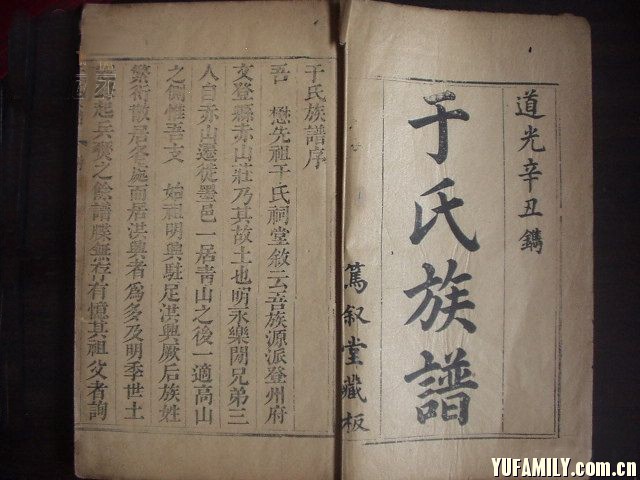 道光辛丑鐫
于氏族譜
篤叙堂藏板
于氏族譜序
吾 懋先祖于氏祠堂敘云吾族源派登州府
文登縣赤山莊乃其故土也明永樂間兄弟三
人自赤山遷徙墨邑一居青山之後一適高山
之側惟吾支 始祖明興駐足洪興厥后族姓
繁衍散居各處而居洪興者為多及明季世土
起兵燹之餘譜牒無存有憶其祖父者詢
YUFAMILY.com.cn